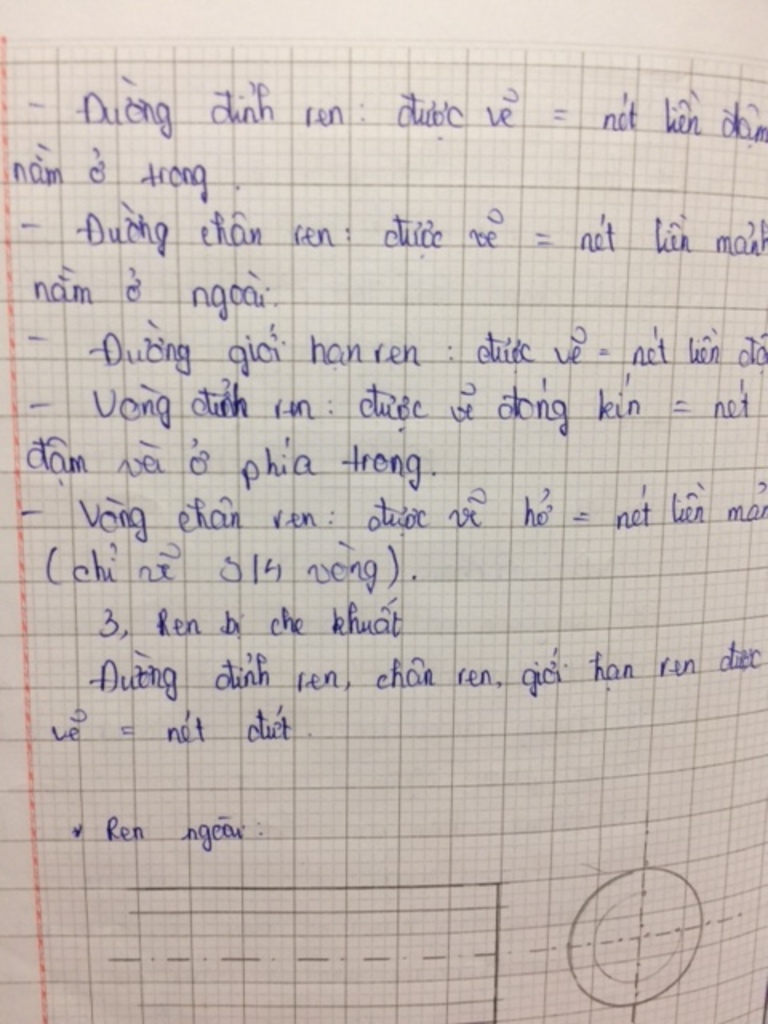 - Đường đỉnh ren: được vẽ = nét liền đậm
nằm ở trong.
- Đường chân ren: được vẽ = nét liền mảnh
nằm ở ngoài.
- Đường giới hạn ren: được vẽ = nét liền
- Vòng đỉnh ren: được vẽ đóng kín = nét
đậm và ở phía trong.
- Vòng chân ren: được vẽ hở = nét liền
(chỉ vẽ 3/4 vòng).
3, Ren bị che khuất
Đường đỉnh ren, chân ren, giới hạn ren được
vẽ = nét đứt.
* Ren ngoài: